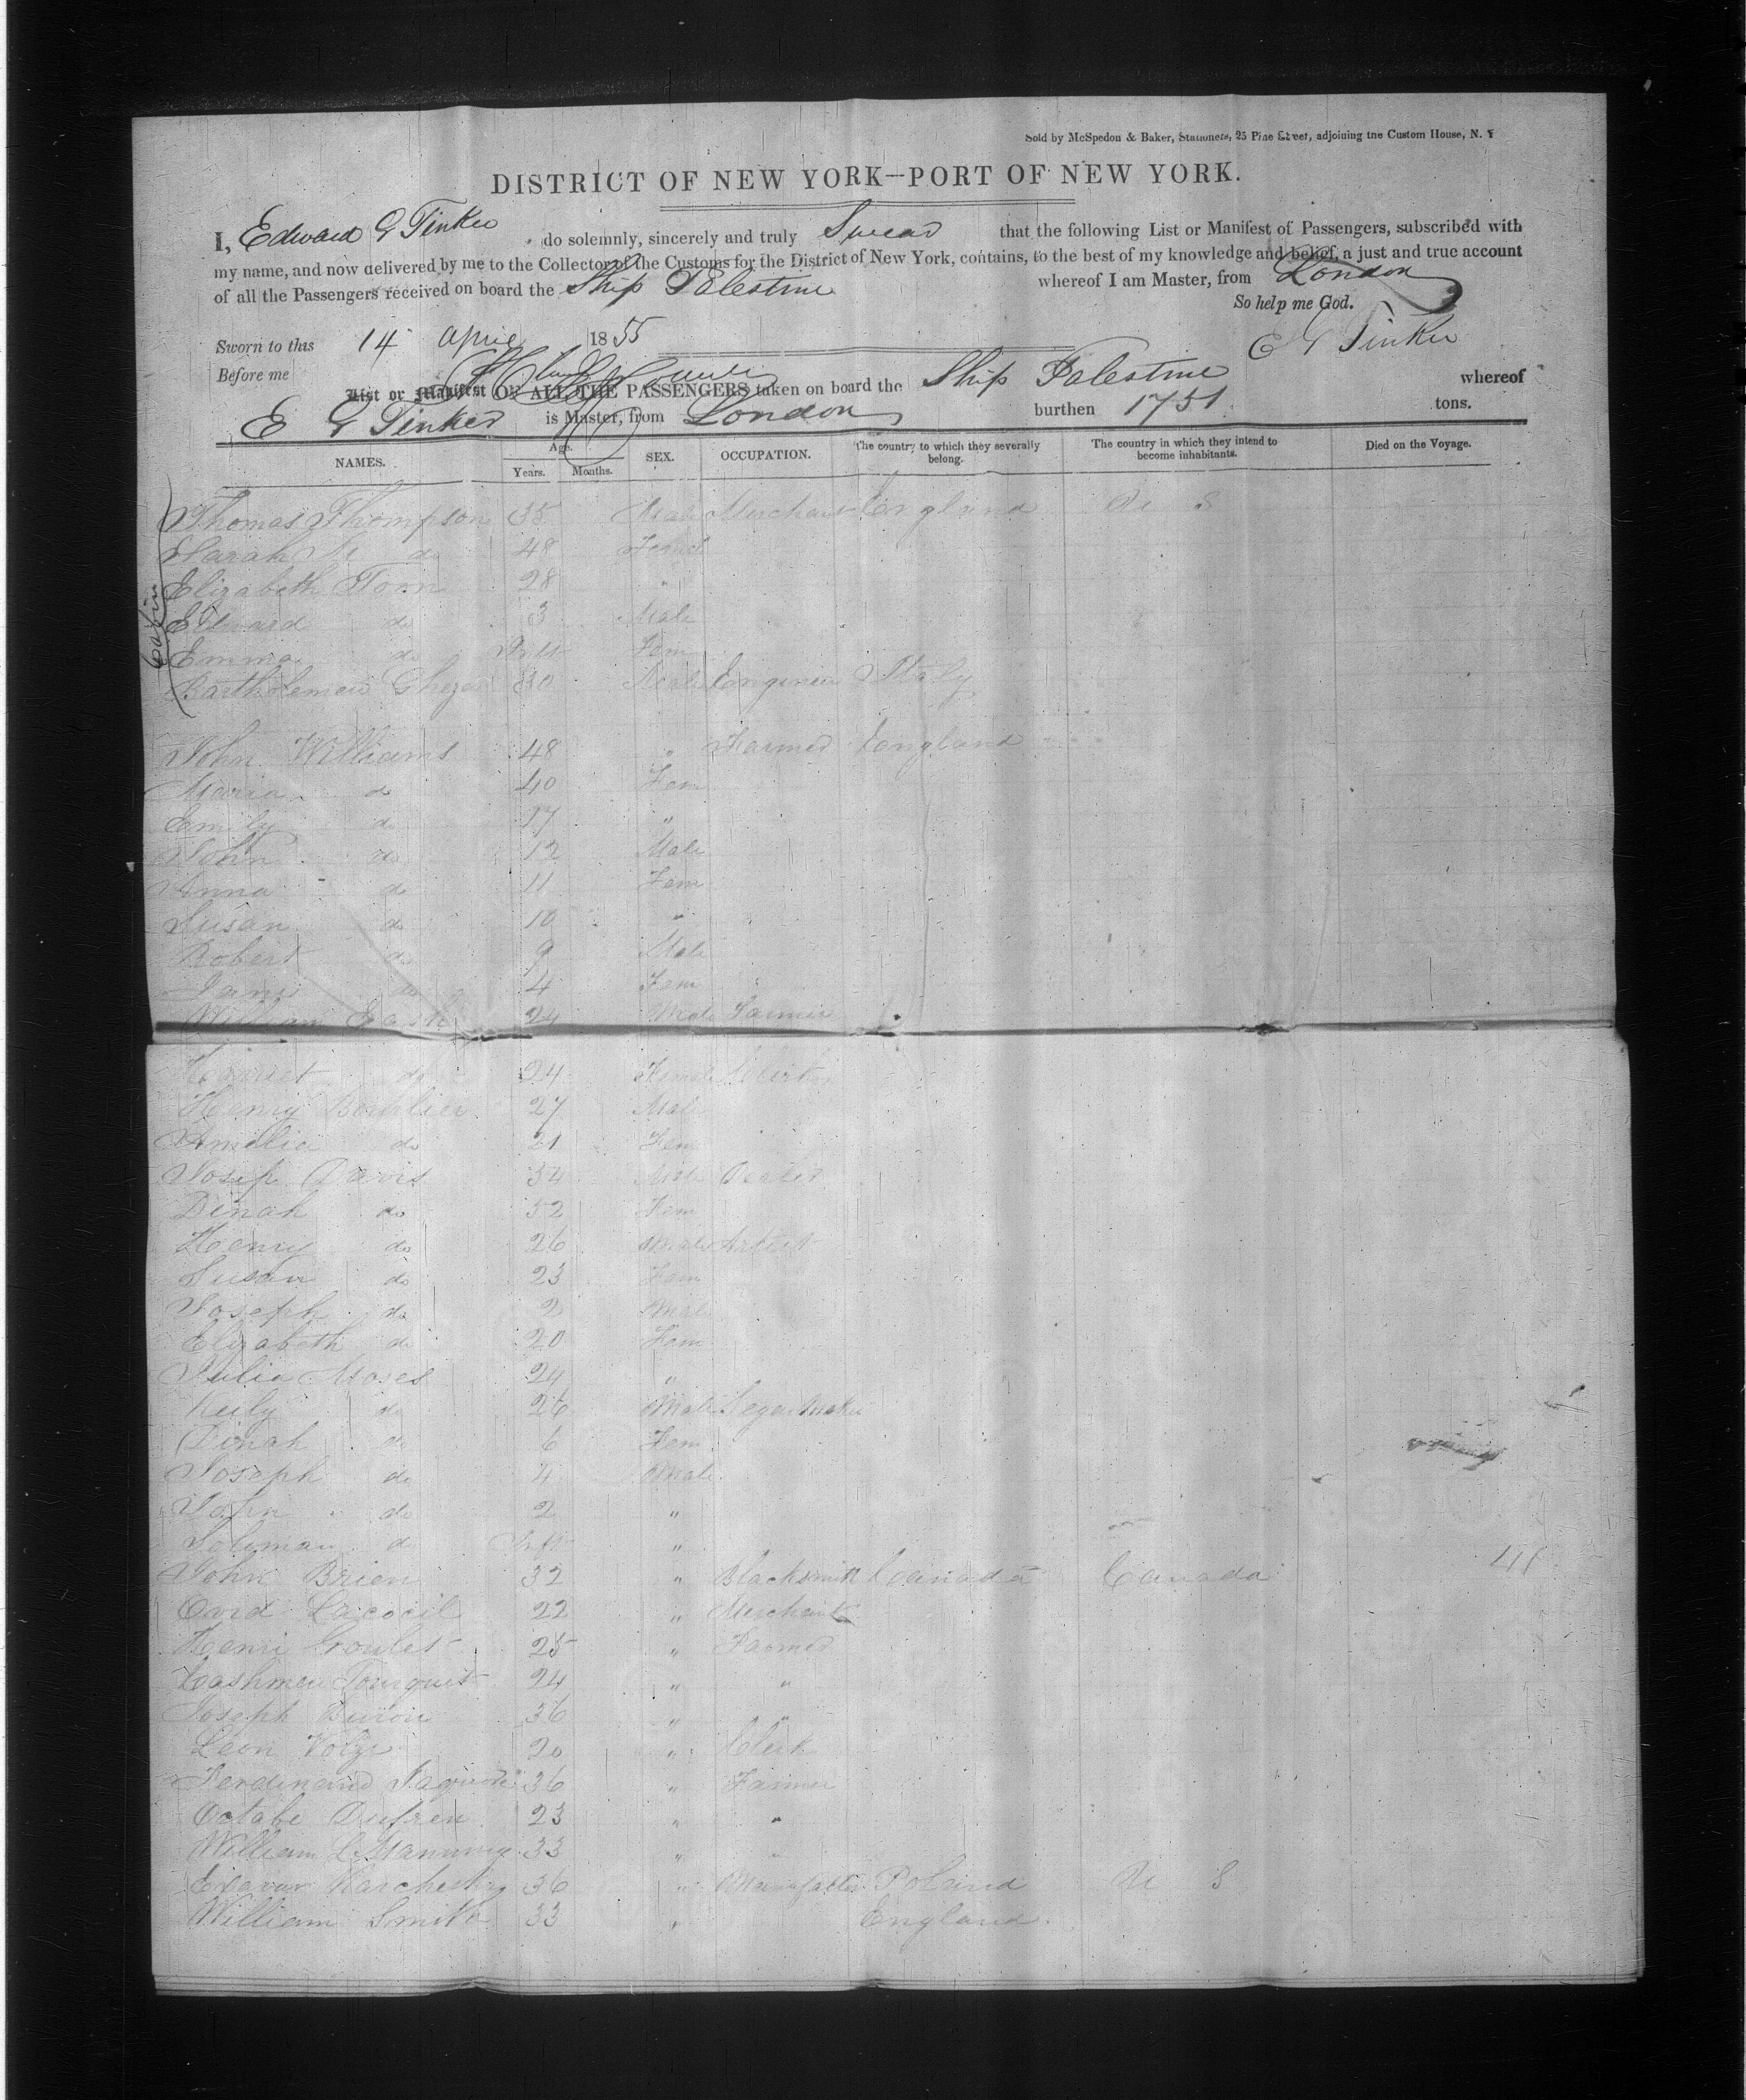 Sold by McSpedon & Baker, Stationers, 25 Pine Street, adjoining the Custom House, N. Y
DISTRICT OF NEW YORK—PORT OF NEW YORK.
I, Edward G Tinker do solemnly, sincerely and truly Swear that the following List or Manifest of Passengers, subscribed with
my name, and now delivered by me to the Collector of the Customs for the District of New York, contains, to the best of my knowledge and belief, a just and true account
of all the Passengers received on board the Ship Palestine whereof I am Master, from London
So help me God.
Sworn to this 14 April 1855 E G Tinker
Before me
List or Manifest OF ALL THE PASSENGERS taken on board the Ship Palestine whereof
E G Tinker is Master, from London burthen 1751 tons.
NAMES. Age. Years. Months. SEX. OCCUPATION. The country to which they severally belong. The country in which they intend to become inhabitants. Died on the Voyage.
Cabin
Thomas Thompson 35 Male Merchant England U S
Sarah do 48 Femal
Elizabeth Toon 28 "
Edward do 3 Male
Emma do Inft Fem
Bartholemew 30 Male Engineer Italy
John Williams 48 " Farmer England
Maria do 40 Fem
Emily do 17 "
John do 12 Male
Anna do 11 Fem
Susan do 10 "
Robert do 9 Male
Jane do 4 Fem
William 24 Male Farmer
Harriet do 24 Female
Henry 27 Mal
Amelia do 21 Fem
Josep Davis 54 Male Dealer
Dinah do 52 Fem
Henry do 26 Male Artist
Susan do 23 Fem
Joseph do 2 Male
Elizabeth do 20 Fem
Julia Moses 24 "
do 26 Male Segar Maker
Dinah do 6 Fem
Joseph do 4 Male
John do 2 "
Soloman do Inft "
John Brien 32 " Blacksmith Canada Canada
Ovid 22 " Merchant
Henri Goulet 25 " Farmer
24 " "
Joseph 36 " "
Leon 20 " Clerk
Ferdinand 36 " Farmer
Octabe Dufren 23 " "
William L Manning 33 " "
36 " Poland U S
William Smith 33 " England